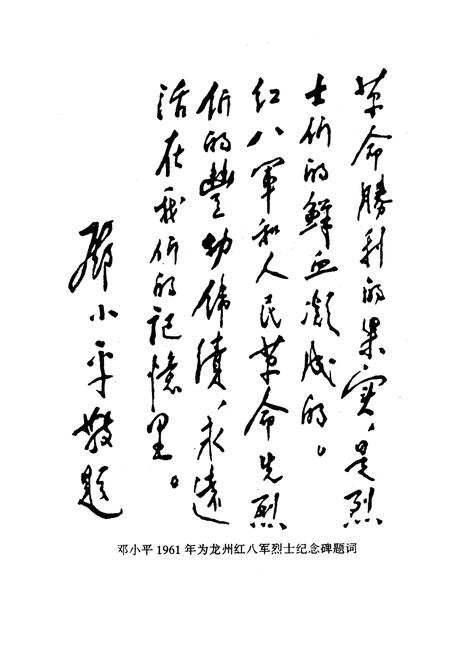 革命勝利的果实，是烈
士们的鮮血凝成的。
红八軍和人民革命先烈
们的豐功偉績，永遠
活在我们的記憶里。
鄧小平敬题
邓小平 1961 年为龙州红八军烈士纪念碑题词